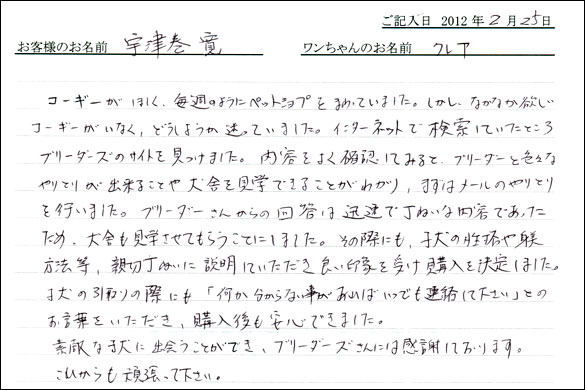 ご記入日 2012年2月25日
お客様のお名前 宇津巻 寛 ワンちゃんのお名前 クレア
コーギーがほしく、毎週のようにペットショップをまわっていました。しかし、なかなか欲しい
コーギーがいなく、どうしようか迷っていました。インターネットで検索していたところ
ブリーダーズのサイトを見つけました。内容をよく確認してみると、ブリーダーと色々な
やりとりが出来ることや犬舎を見学できることがわかり、まずはメールのやりとり
を行いました。ブリーダーさんからの回答は迅速で丁ねいな内容であった
ため、犬舎も見学させてもらうことにしました。その際にも、子犬の性格や躾
方法等、親切丁ねいに説明していただき良い印象を受け購入を決定しました。
子犬の引取りの際にも「何か分からない事があればいつでも連絡して下さい」との
お言葉をいただき、購入後も安心できました。
素敵な子犬に出会うことができ、ブリーダーズさんには感謝しております。
これからも頑張って下さい。